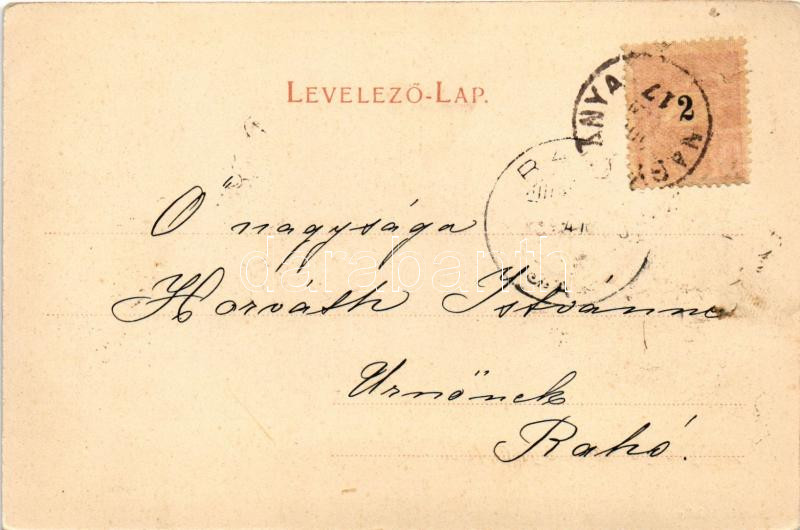 LEVELEZŐ-LAP.
2
17
Ő nagysága
Horváth Istvánné
Urnőnek
Rahó.
darabanth